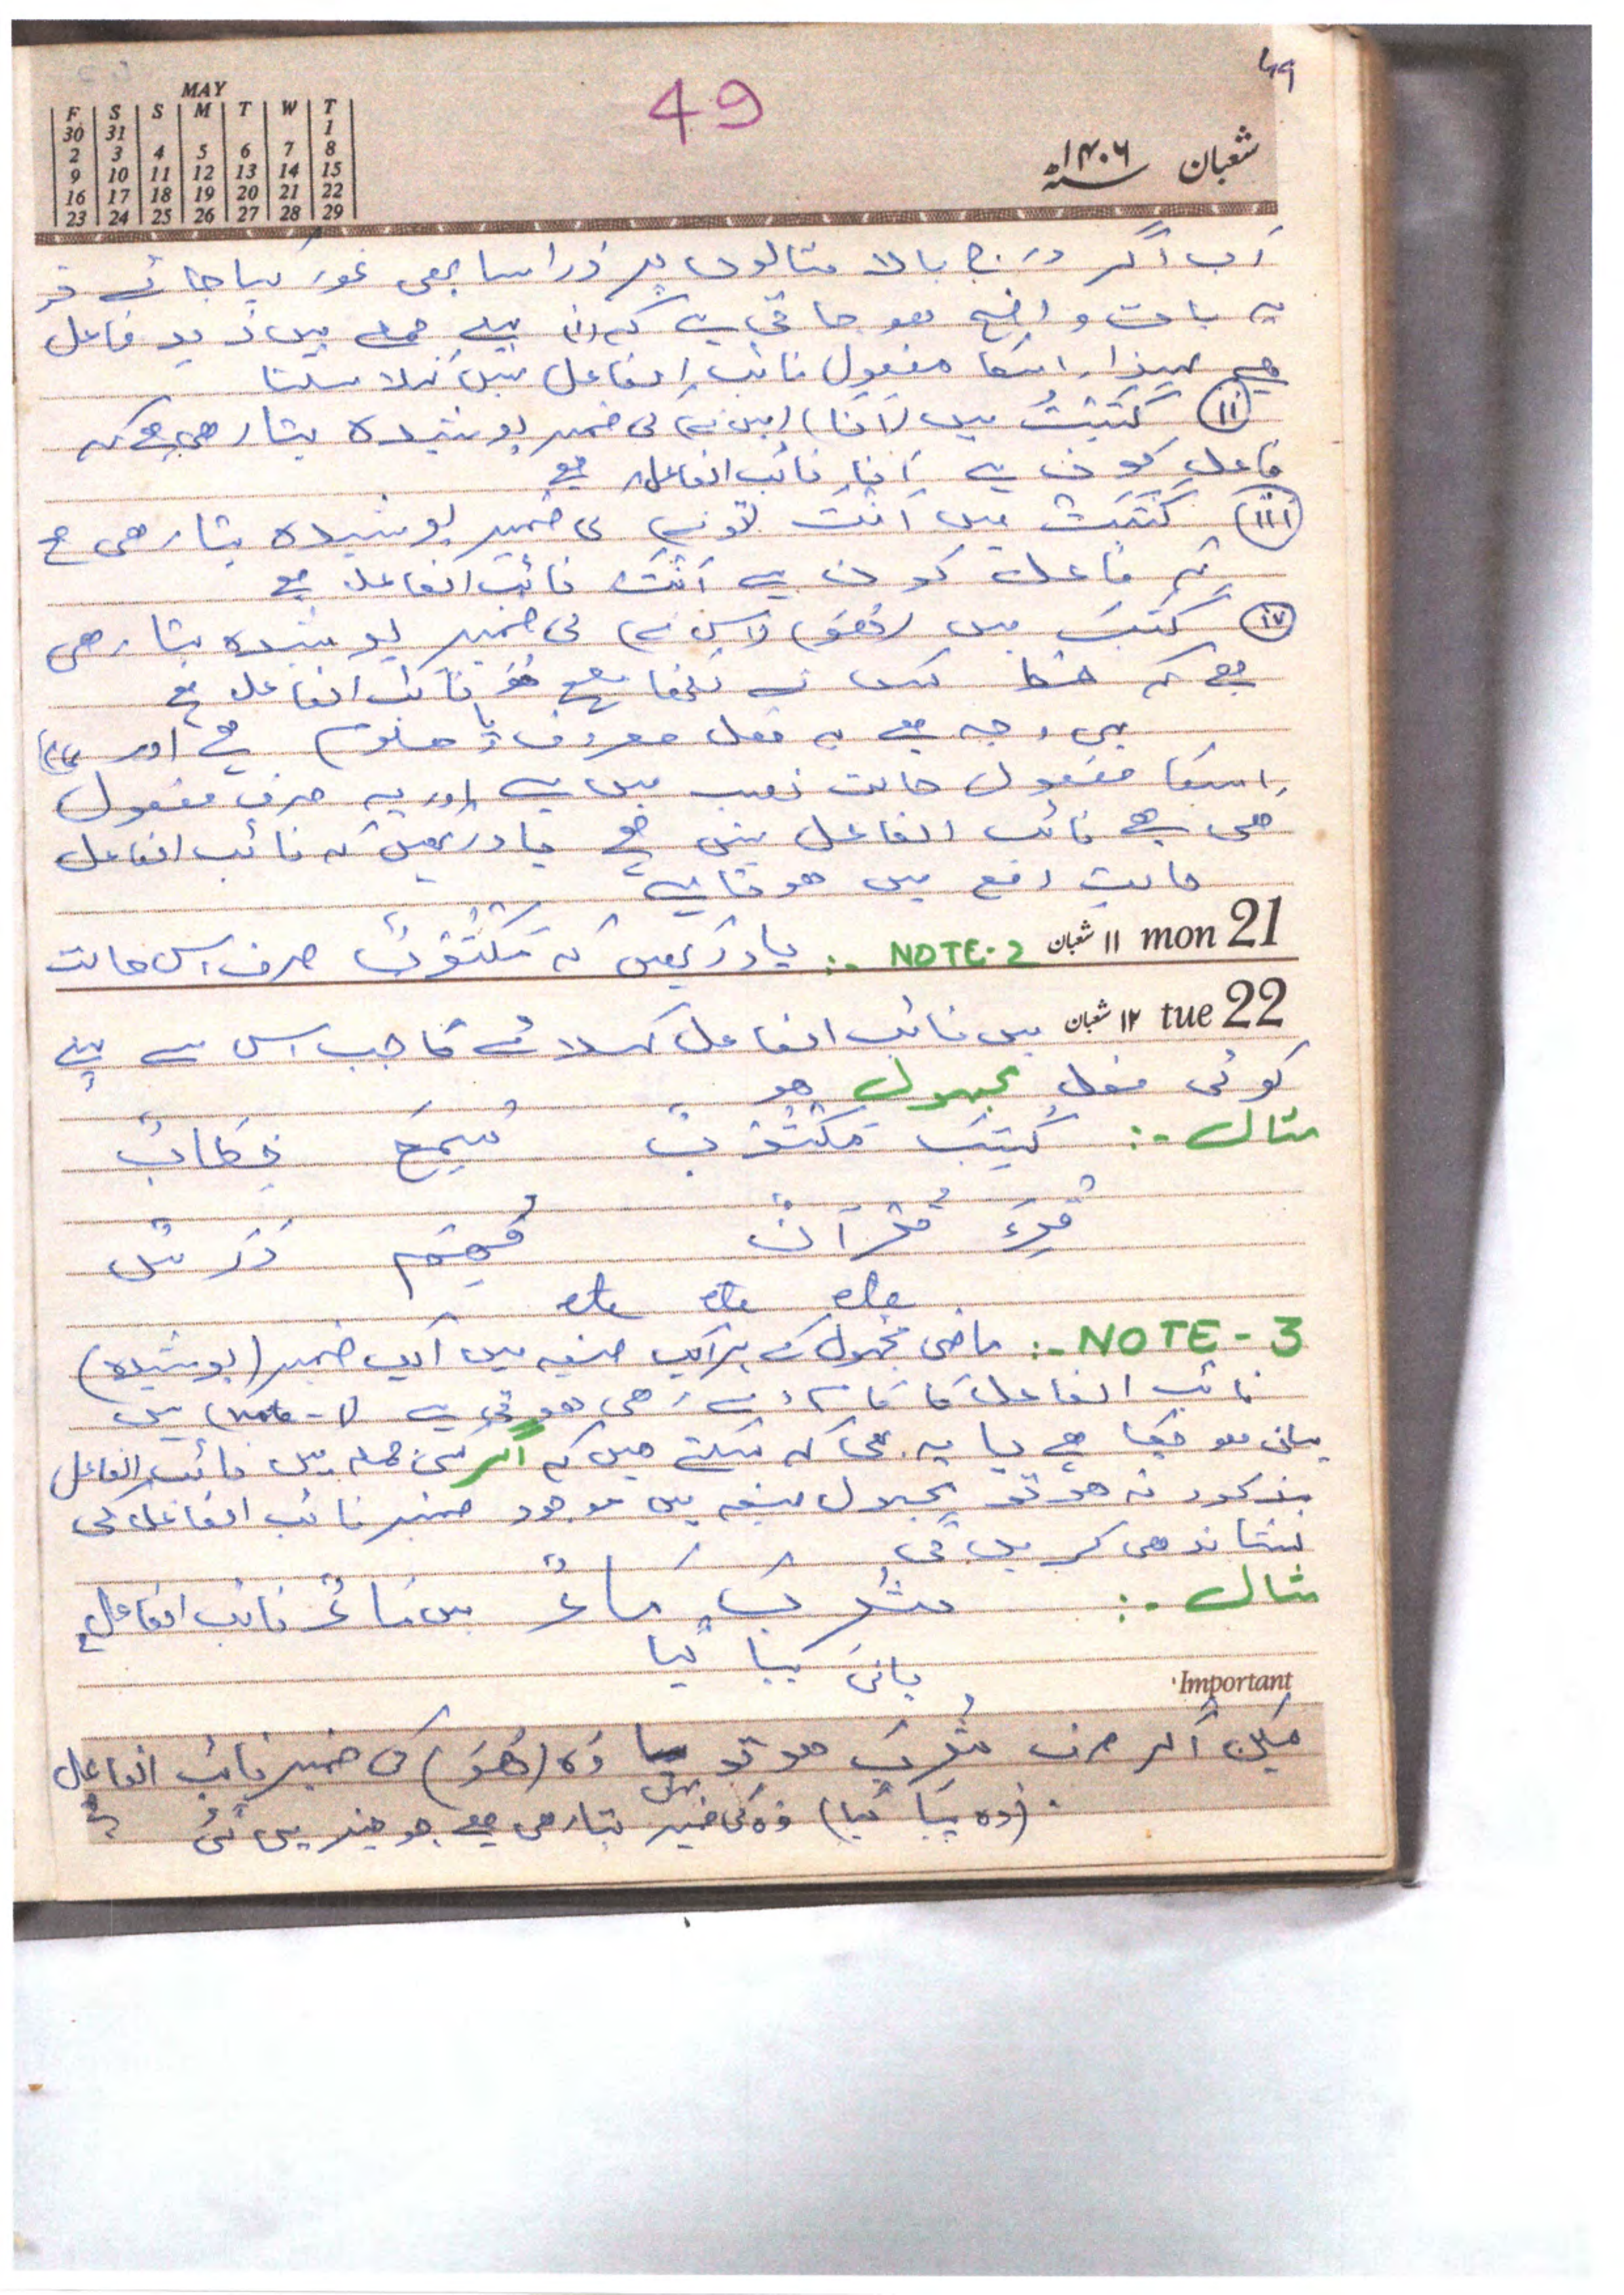 49
49
MAY
F S S M T W T
30 31 1
2 3 4 5 6 7 8
9 10 11 12 13 14 15
16 17 18 19 20 21 22
23 24 25 26 27 28 29
شعبان ۱۴۰۶
اب اگر درج بالا مثالوں پر ذرا سا بھی غور کیا جائے تو
یہ بات واضح ہو جاتی ہے کہ (i) پہلے جملے میں زید فاعل
ہے لہذا اسکا مفعول نائب الفاعل نہیں کہلا سکتا
(ii) كَتَبْتُ میں (أنا) (میں نے) کی ضمیر پوشیدہ بتا رهی ہے کہ
فاعل کون ہے أنا نائب الفاعل ہے
(iii) كَتَبْتَ میں أَنْتَ تو نے کی ضمیر پوشیدہ بتا رهی ہے
کہ فاعل کون ہے أَنْتَ نائب الفاعل ہے
(iv) كَتَبَ میں (هُوَ) (اس نے) کی ضمیر پوشیدہ بتا رهی
ہے کہ خط کس نے لکھا ہے هُوَ نائب الفاعل ہے
یہی وجہ ہے یہ فعل معروف (یا معلوم) ہے اور
اسکا مفعول حالت نصب میں ہے اور یہ صرف مفعول
هی ہے نائب الفاعل نہیں ہے یاد رکھیں کہ نائب الفاعل
حالت رفع میں هوتا ہے
21 mon ۱۱ شعبان NOTE-2 :- یاد رکھیں کہ مَكْتُوْبٌ صرف اس حالت
22 tue ۱۲ شعبان میں نائب الفاعل کہلائے گا جب اس سے پہلے
کوئی فعل مجہول هو
مثال :- كُتِبَ مَكْتُوْبٌ سُمِعَ خِطَابٌ
قُرِءَ قُرْآنٌ فُهِمَ دَرْسٌ
etc etc etc
NOTE - 3 :- ماضی مجہول کے ہر ایک صیغہ میں ایک ضمیر (پوشیدہ)
نائب الفاعل کا کام دے رهی هوتی ہے (note-1) میں
بیان ہو چکا ہے یا یہ بھی کہہ سکتے هیں کہ اگر کسی جملہ میں نائب الفاعل
مذکور نہ هو تو مجہول صیغہ میں موجود ضمیر نائب الفاعل کی
نشاندهی کریں گی
مثال :- شُرِبَ مَاءٌ میں مَاءٌ نائب الفاعل ہے
پانی پیا گیا
Important
لیکن اگر صرف شُرِبَ هو تو وہ (هُوَ) کی ضمیر نائب الفاعل
(وہ پیا گیا) وہ کی ضمیر بتا رهی ہے جو چیز پی گئی